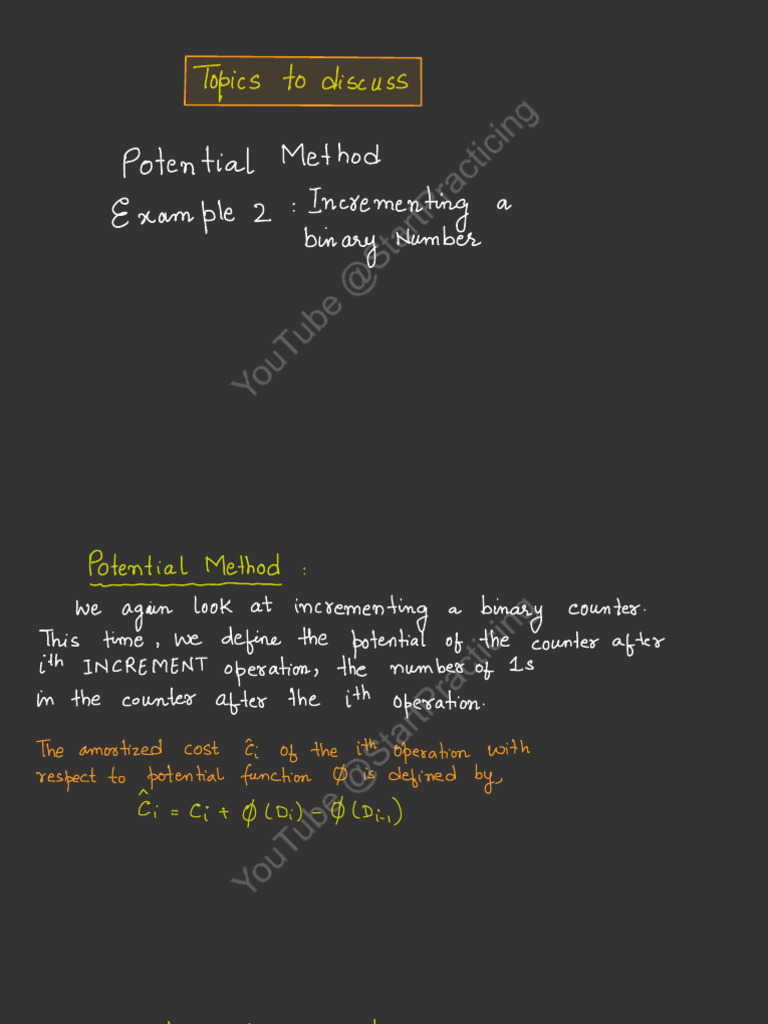 Topics to discuss
Potential Method
Example 2 : Incrementing a
binary Number
YouTube @StartPracticing
Potential Method :
We again look at incrementing a binary counter.
This time, we define the potential of the counter after
ith INCREMENT operation, the number of 1s
in the counter after the ith operation.
The amortized cost ĉi of the ith operation with
respect to potential function ϕ is defined by,
Ĉi = Ci + ϕ(Di) - ϕ(Di-1)
YouTube @StartPracticing